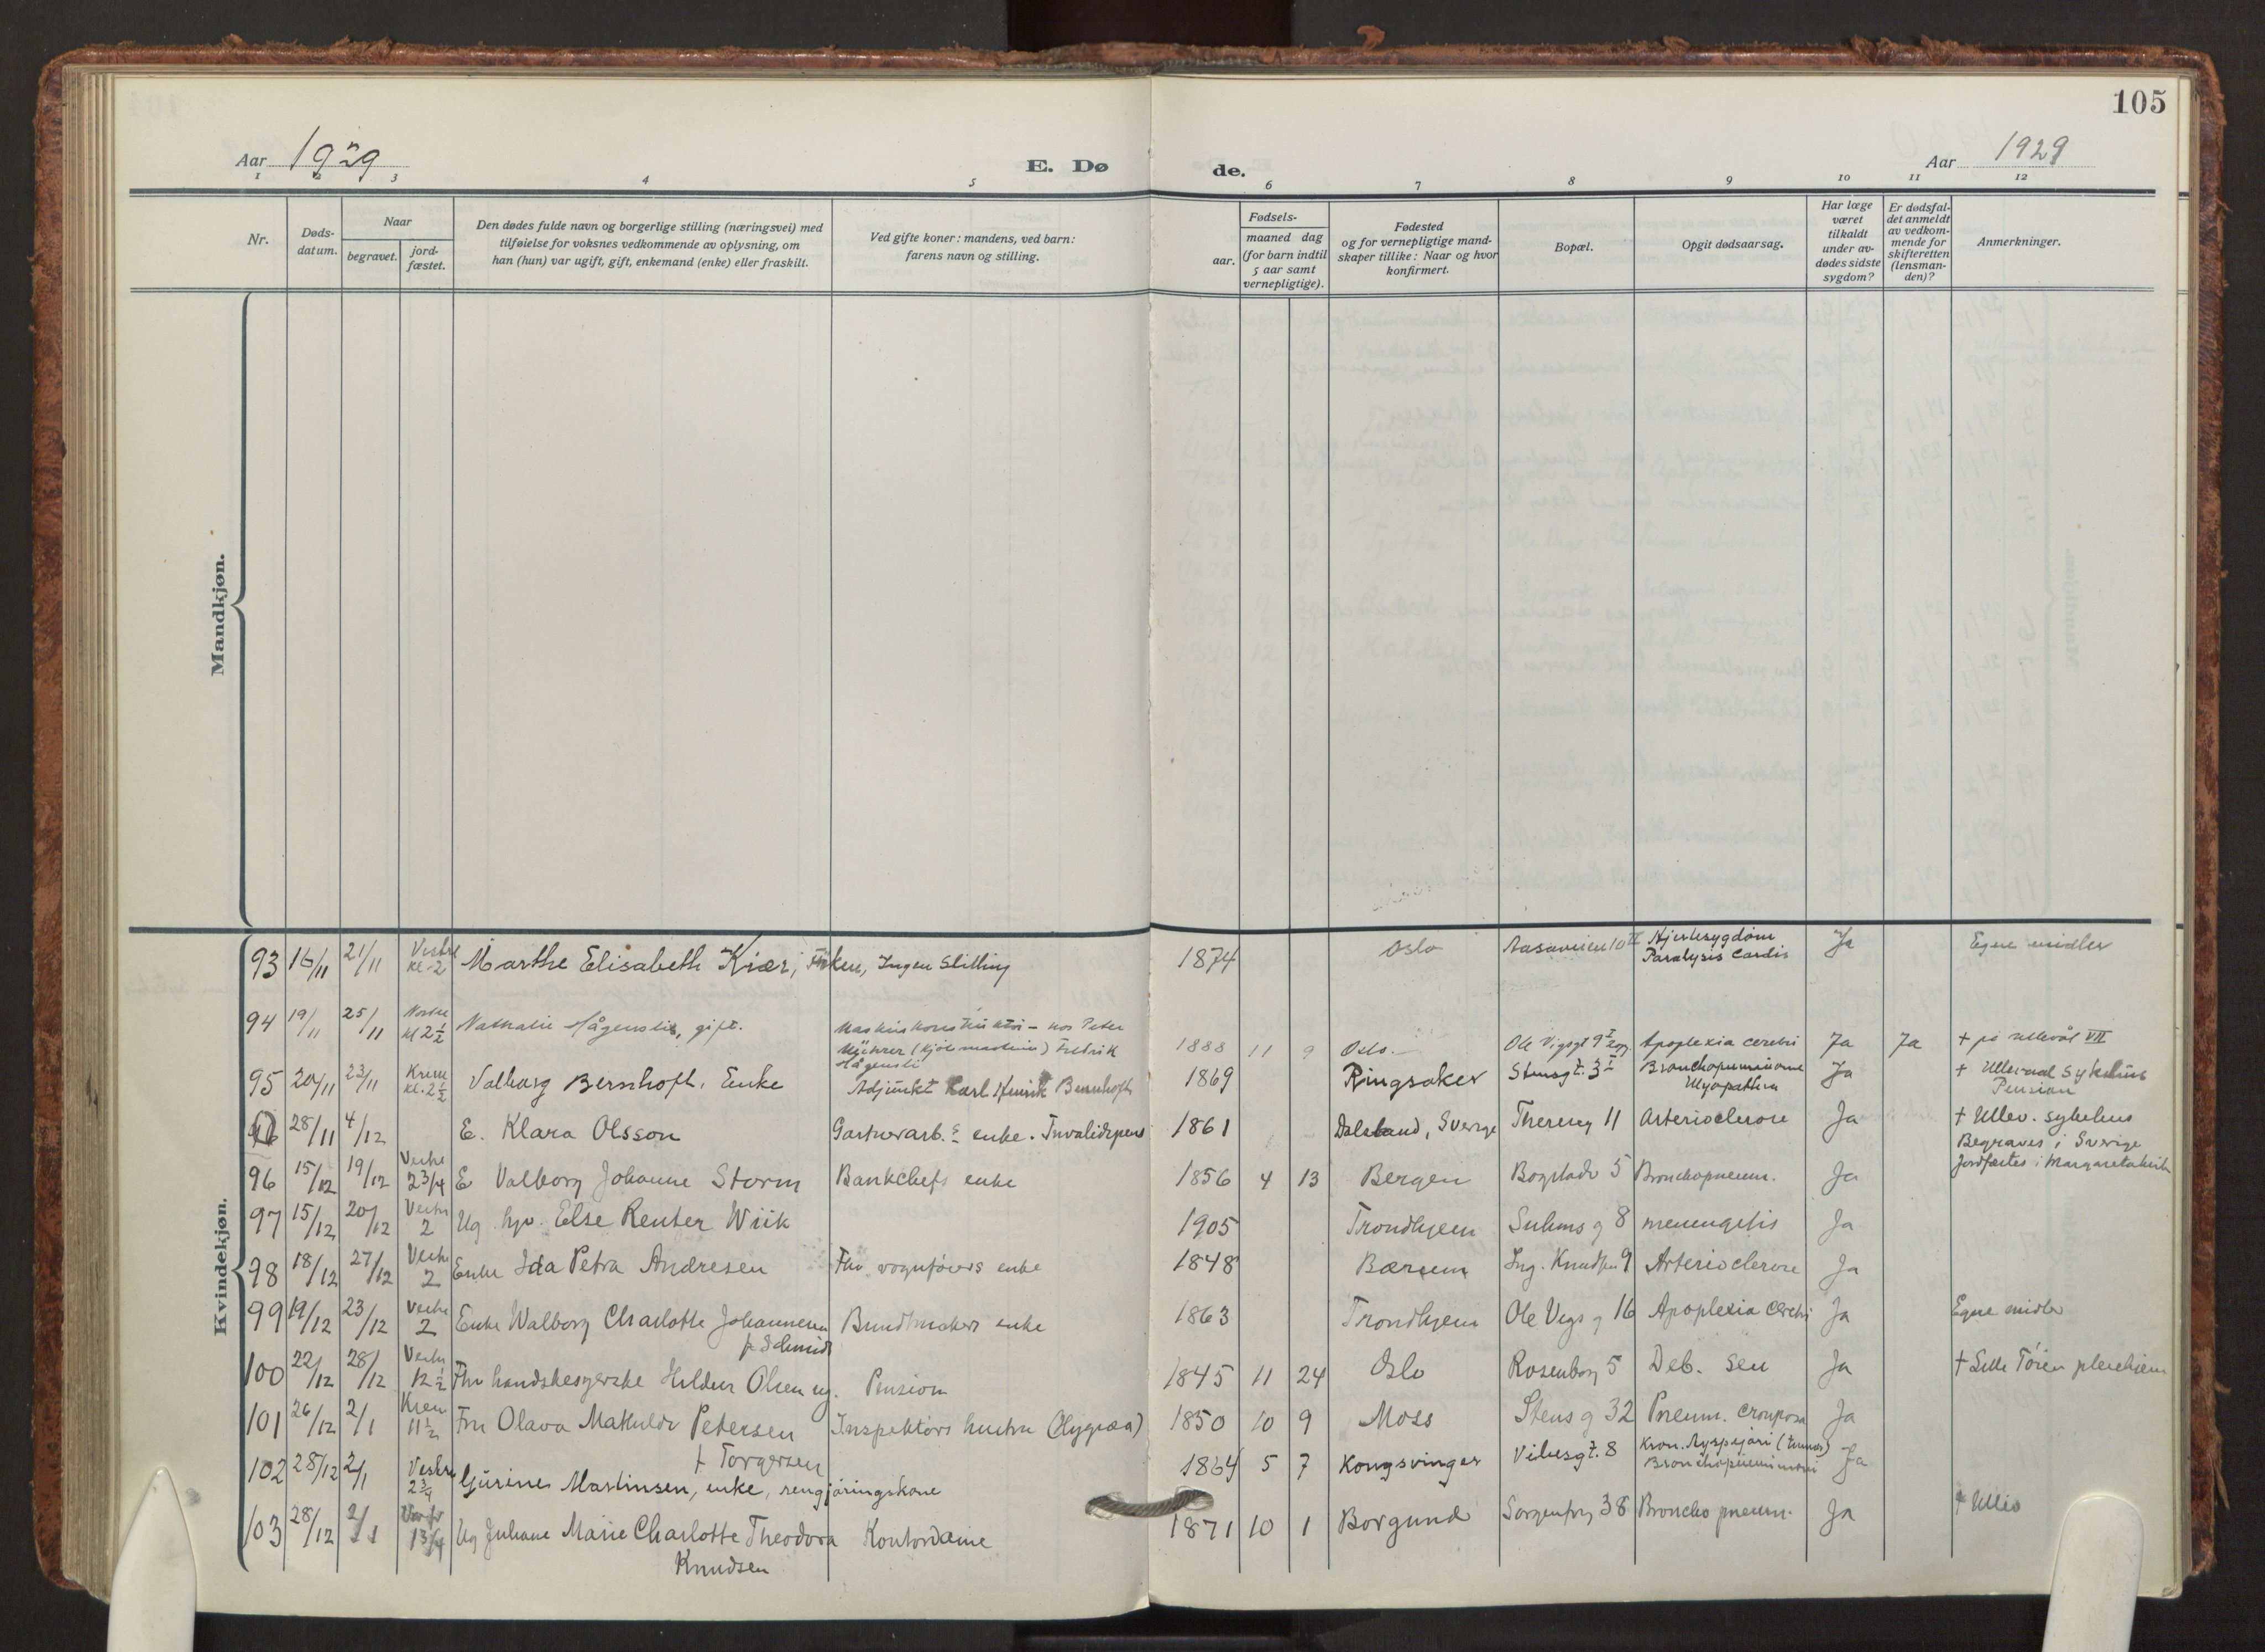 105
Aar 1929
E. Dø de.
Aar 1929
1 2 3 4 5 6 7 8 9 10 11 12
Nr.
Døds-
datum.
Naar
begravet.
jord-
fæstet.
Den dødes fulde navn og borgerlige stilling (næringsvei) med
tilføielse for voksnes vedkommende av oplysning, om
han (hun) var ugift, gift, enkemand (enke) eller fraskilt.
Ved gifte koner: mandens, ved barn:
farens navn og stilling.
Fødsels-
aar.
maaned dag
(for barn indtil
5 aar samt
vernepligtige).
Fødested
og for vernepligtige mand-
skaper tillike: Naar og hvor
konfirmert.
Bopæl.
Opgit dødsaarsag.
Har læge
været
tilkaldt
under av-
dødes sidste
sygdom?
Er dødsfal-
det anmeldt
av vedkom-
mende for
skifteretten
(lensman-
den)?
Anmerkninger.
Mandkjøn.
Kvindekjøn.
93 16/11 21/11 Vestre kl. 2 Marthe Elisabeth Kiær, Frøken, Ingen Stilling 1874 Oslo Aasaveien 10 II Hjertesygdom Paralysis Cardis Ja Egne midler
94 19/11 25/11 kl 2 1/2 Nathalie Hågensli, gift. Maskinkonstruktør - hos Peter
(Kjølemaskiner) Fredrik
Hågensli 1888 11 9 Oslo. Ole Vigsgt 9 Apoplexia cerebri Ja Ja + på Ullevål VII
95 20/11 23/11 Krem kl. 2 1/2 Valborg Bernhoft, Enke Adjunkt Karl Henrik Bernhoft 1869 Ringsaker Stensgt. 3 I Bronchopneumonie Myopathia Ja + Ullevaal Sykehus
Pension
28/11 4/12 E. Klara Olsson Gartnerarb.s enke. Invalidepens 1861 Dalsland, Sverige Theresg 11 Arteriosclerose Ja † Ullev. sykehus
Begraves i Sverige
Jordfæstes i Margaretakirk
96 15/12 19/12 Vestre 2 3/4 E Valborg Johanne Storm Bankchefs enke 1856 4 13 Bergen Bogstadv 5 Bronchopneum. Ja
97 15/12 20/12 Vestre 2 Ug. hjv. Else Reuter Wiik 1905 Trondhjem Suhms g 8 menengitis Ja
98 18/12 27/12 Vestre 2 Enke Ida Petra Andresen Fhv vognførers enke 1848 Bærum Ing. Knudsen 9 Arteriosclerose Ja
99 19/12 23/12 Vestre 2 Enke Walborg Charlotte Johannesen
f. Schmidt Bundtmakers enke 1863 Trondhjem Ole Vigs g 16 Apoplexia Cerebri Ja Egne midler
100 22/12 28/12 Vestre 12 1/2 Fhv handskesyerske Hildur Olsen ug. Pension 1845 11 24 Oslo Rosenborg 5 Deb. sen Ja † Lille Tøien pleiehjem
101 26/12 2/1 Krem 11 1/2 Fru Olava Mathilde Petersen
f Torgersen Inspektørs hustru (Hygiea) 1850 10 9 Moss Stens g 32 Pneum. crouposa Ja
102 28/12 2/1 Vestre 2 3/4 Gurine Martinsen, enke, rengjøringskone 1864 5 7 Kongsvinger Vibesgt. 8 (tumor) Bronchopneumoni Ja
103 28/12 2/1 1 3/4 Ug Juliane Marie Charlotte Theodora
Knudsen Kontordame 1871 10 1 Borgund Sorgenfrig 38 Bronchopneum. Ja † Ullev